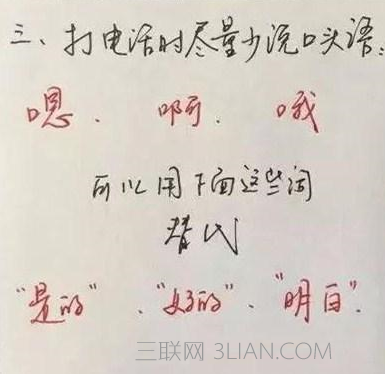 三、打电话时尽量少说口头语：
嗯、啊、哦
可以用下面这些词
替代
“是的”、“好的”、“明白”.
三联网 3LIAN.COM